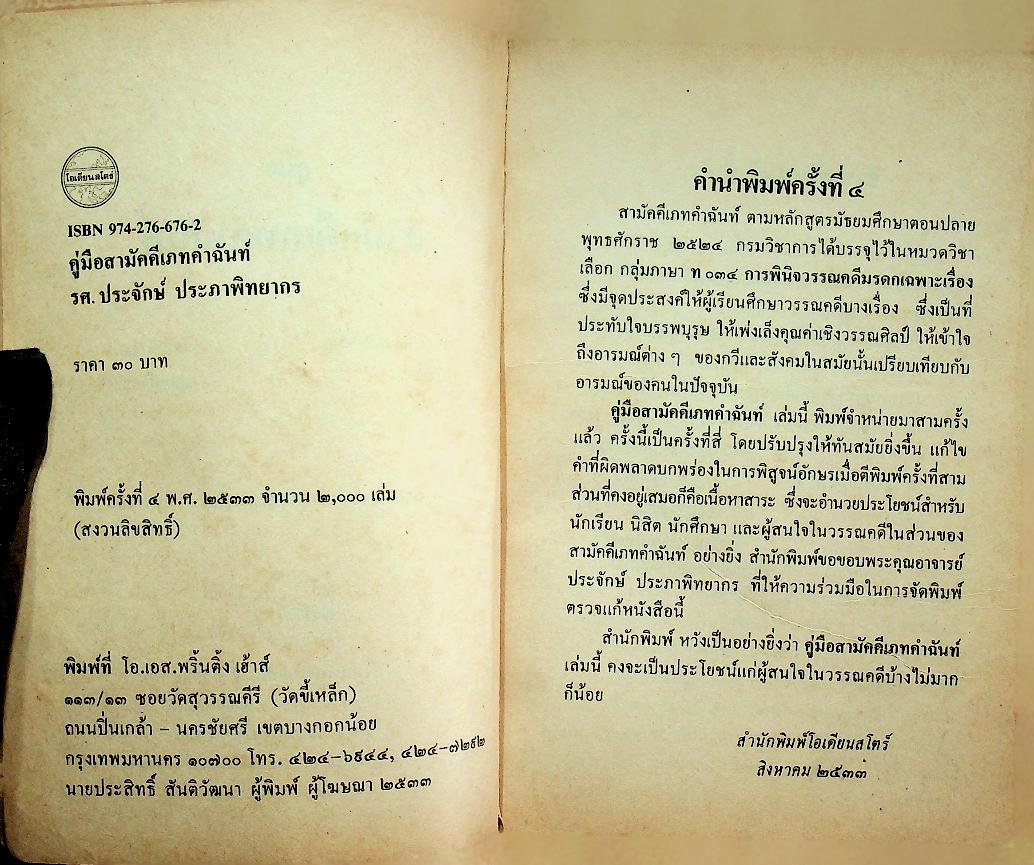 โอเดียนสโตร์
ISBN 974-276-676-2
คู่มือสามัคคีเภทคำฉันท์
รศ. ประจักษ์ ประภาพิทยากร
ราคา ๓๐ บาท
พิมพ์ครั้งที่ ๔ พ.ศ. ๒๕๓๓ จำนวน ๒,๐๐๐ เล่ม
(สงวนลิขสิทธิ์)
พิมพ์ที่ โอ.เอส.พริ้นติ้ง เฮ้าส์
๑๑๓/๑๓ ซอยวัดสุวรรณคีรี (วัดขี้เหล็ก)
ถนนปิ่นเกล้า – นครชัยศรี เขตบางกอกน้อย
กรุงเทพมหานคร ๑๐๗๐๐ โทร. ๔๒๔-๖๙๔๔, ๔๒๔-๗๒๙๒
นายประสิทธิ์ สันติวัฒนา ผู้พิมพ์ ผู้โฆษณา ๒๕๓๓
คำนำพิมพ์ครั้งที่ ๔
สามัคคีเภทคำฉันท์ ตามหลักสูตรมัธยมศึกษาตอนปลาย
พุทธศักราช ๒๕๒๔ กรมวิชาการได้บรรจุไว้ในหมวดวิชา
เลือก กลุ่มภาษา ท ๐๓๔ การพินิจวรรณคดีมรดกเฉพาะเรื่อง
ซึ่งมีจุดประสงค์ให้ผู้เรียนศึกษาวรรณคดีบางเรื่อง ซึ่งเป็นที่
ประทับใจบรรพบุรุษ ให้เพ่งเล็งคุณค่าเชิงวรรณศิลป์ ให้เข้าใจ
ถึงอารมณ์ต่าง ๆ ของกวีและสังคมในสมัยนั้นเปรียบเทียบกับ
อารมณ์ของคนในปัจจุบัน
คู่มือสามัคคีเภทคำฉันท์ เล่มนี้ พิมพ์จำหน่ายมาสามครั้ง
แล้ว ครั้งนี้เป็นครั้งที่สี่ โดยปรับปรุงให้ทันสมัยยิ่งขึ้น แก้ไข
คำที่ผิดพลาดบกพร่องในการพิสูจน์อักษรเมื่อตีพิมพ์ครั้งที่สาม
ส่วนที่คงอยู่เสมอก็คือเนื้อหาสาระ ซึ่งจะอำนวยประโยชน์สำหรับ
นักเรียน นิสิต นักศึกษา และผู้สนใจในวรรณคดีในส่วนของ
สามัคคีเภทคำฉันท์ อย่างยิ่ง สำนักพิมพ์ขอขอบพระคุณอาจารย์
ประจักษ์ ประภาพิทยากร ที่ให้ความร่วมมือในการจัดพิมพ์
ตรวจแก้หนังสือนี้
สำนักพิมพ์ หวังเป็นอย่างยิ่งว่า คู่มือสามัคคีเภทคำฉันท์
เล่มนี้ คงจะเป็นประโยชน์แก่ผู้สนใจในวรรณคดีบ้างไม่มาก
ก็น้อย
สำนักพิมพ์โอเดียนสโตร์
สิงหาคม ๒๕๓๓